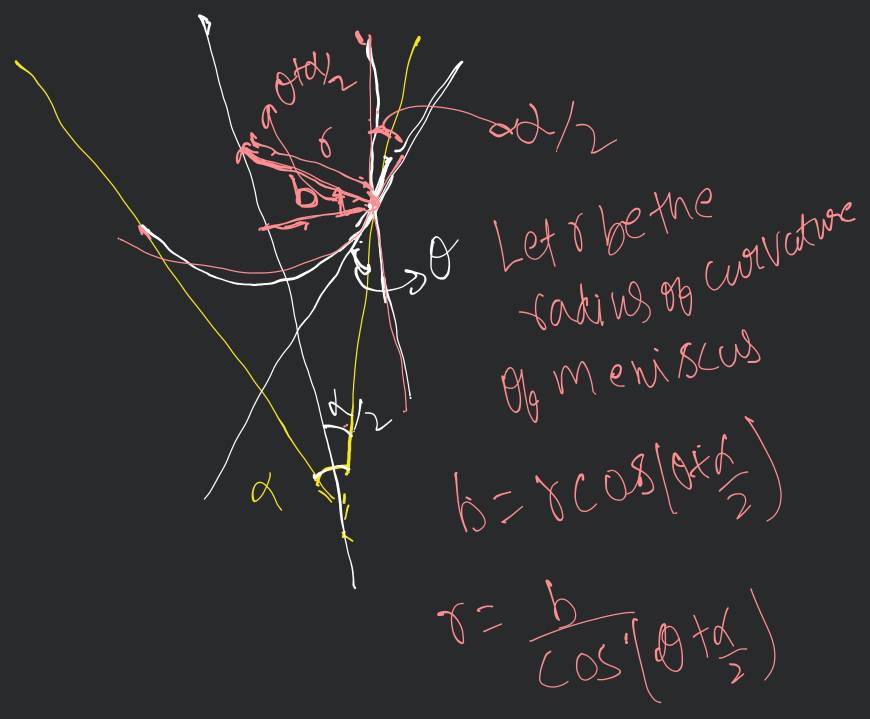 θ+α/2
r
b
α/2
θ
α/2
α
Let r be the
radius of curvature
of meniscus
b = r cos(θ+α/2)
r = b/cos(θ+α/2)